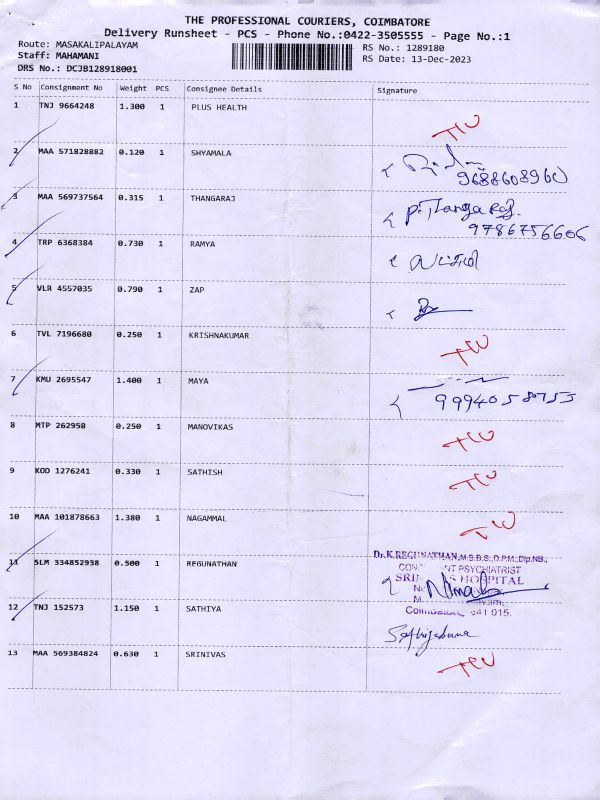 THE PROFESSIONAL COURIERS, COIMBATORE
Delivery Runsheet - PCS - Phone No.:0422-3505555 - Page No.:1
Route: MASAKALIPALAYAM RS No.: 1289180
Staff: MAHAMANI RS Date: 13-Dec-2023
DRS No.: DCJB128918001
S No Consignment No Weight PCS Consignee Details Signature
1 TNJ 9664248 1.300 1 PLUS HEALTH
2 MAA 571828882 0.120 1 SHYAMALA
9688608960
3 MAA 569737564 0.315 1 THANGARAJ P. Thangaraj
9786756606
4 TRP 6368384 0.730 1 RAMYA
5 VLR 4557035 0.790 1 ZAP
6 TVL 7196680 0.250 1 KRISHNAKUMAR
7 KMU 2695547 1.400 1 MAYA
9994058753
8 MTP 262958 0.250 1 MANOVIKAS
9 KDD 1276241 0.330 1 SATHISH
10 MAA 101878663 1.380 1 NAGAMMAL
Dr.K.REGUNATHAN,M.B.B.S.,D.P.M.,Dip.NB.,
11 SLM 334852938 0.500 1 REGUNATHAN
PSYCHIATRIST
HOSPITAL
12 TNJ 152573 1.150 1 SATHIYA
13 MAA 569384824 0.630 1 SRINIVAS